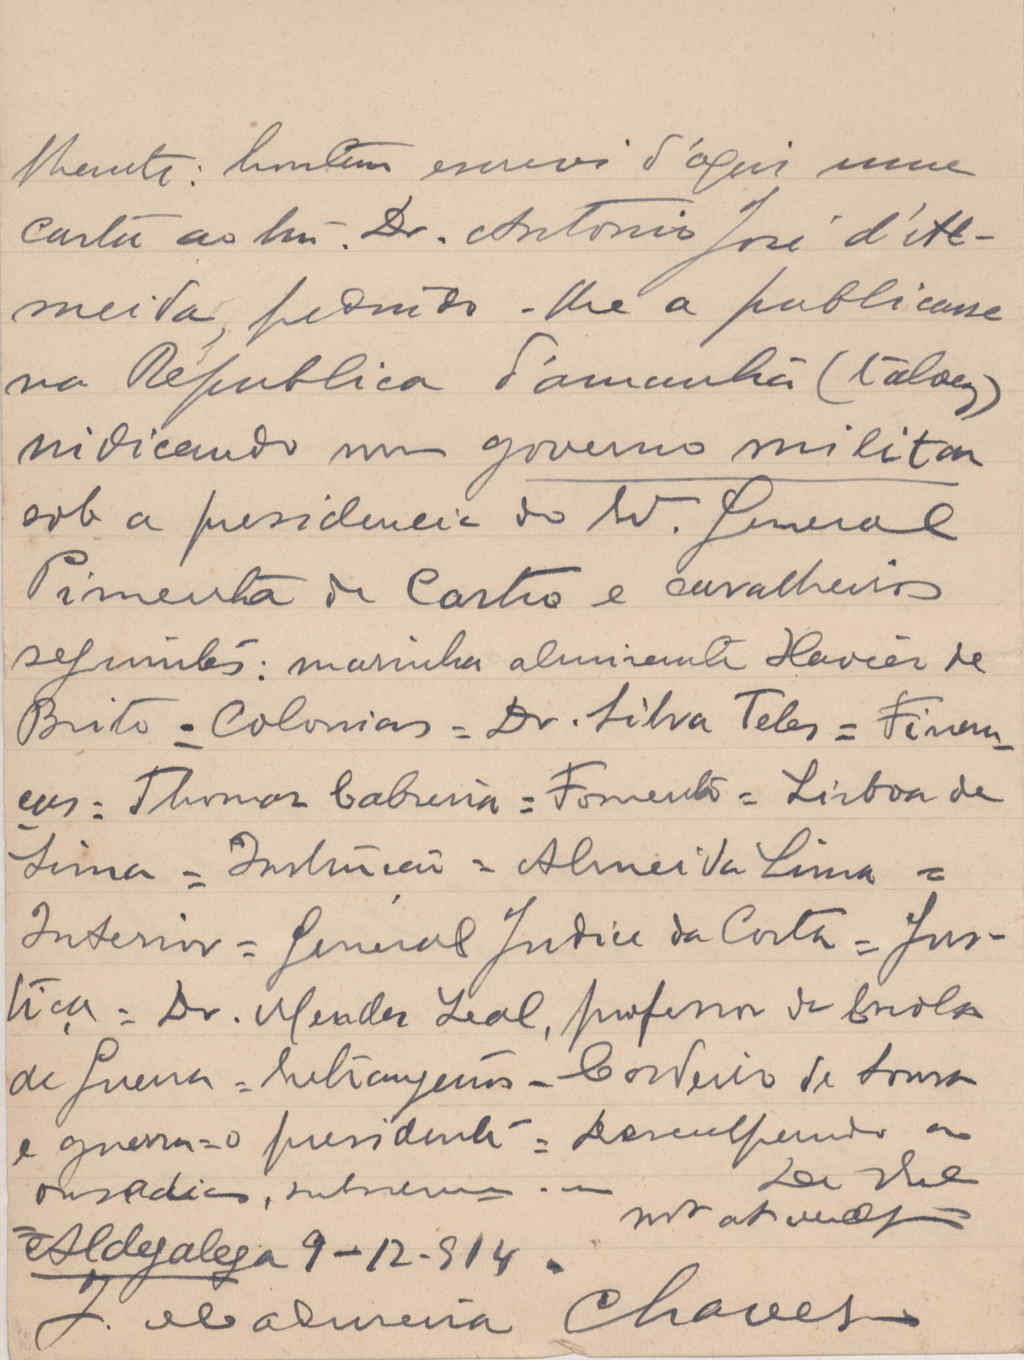 hontem escrevi d'aqui uma
carta ao Ex. Dr. Antonio José d'Al-
meida, pedindo-lhe a publicasse
na Republica d'amanhã (talvez)
indicando um governo militar
sob a presidencia do Sr. General
Pimenta de Castro e cavalheiros
seguintes: marinha almirante Xavier de
Brito = Colonias = Dr. Silva Teles = Finan-
ças = Thomaz Cabreira = Fomento = Lisboa de
Lima = Instrução = Almeida Lima =
Interior = General Judice da Costa = Jus-
tiça = Dr. Mendes Leal, professor da Escola
de Guerra = Estrangeiros = Cordeiro de Sousa
e guerra = o presidente = Desculpando a
ousadia, subscrevo-me De V. Ex.
= Aldegalega 9-12-914.
J. Chaves